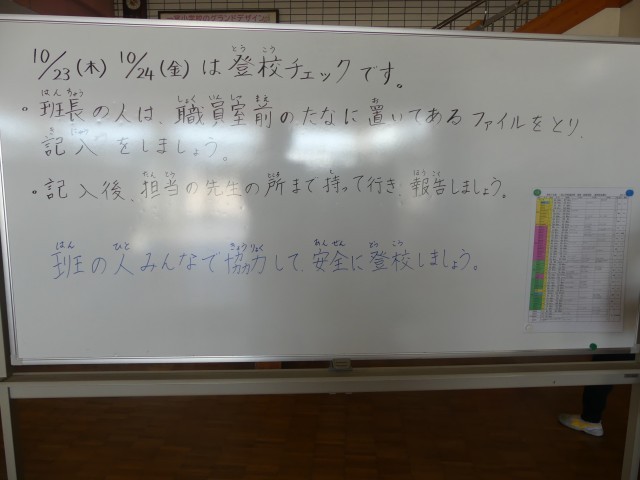 10/23(木) 10/24(金)は登校チェックです。
・班長の人は、職員室前のたなに置いてあるファイルをとり、
記入をしましょう。
・記入後、担当の先生の所まで持って行き、報告しましょう。
班の人みんなで協力して、安全に登校しましょう。